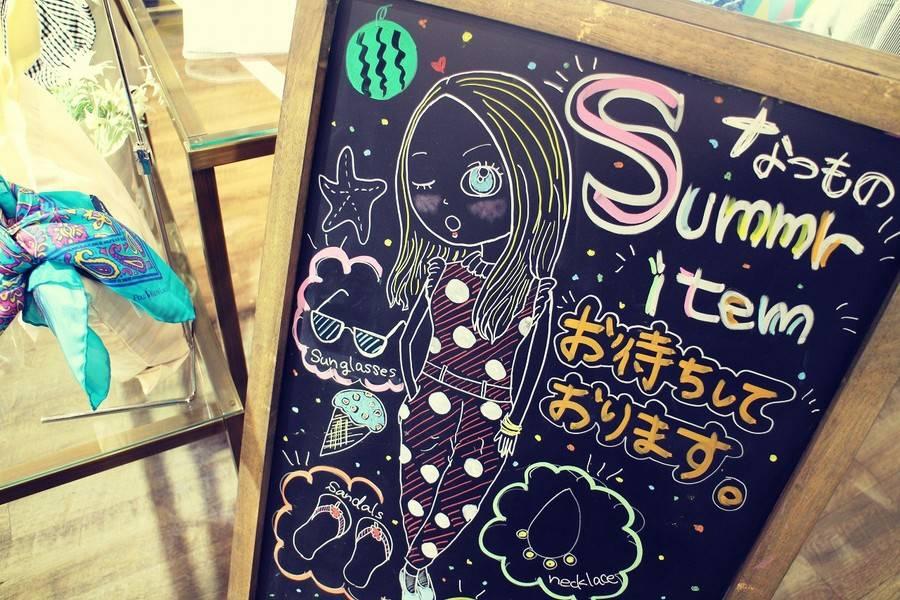 なつもの
Summr
item
お待ちして
おります。
Sunglasses
Sandals
necklaces